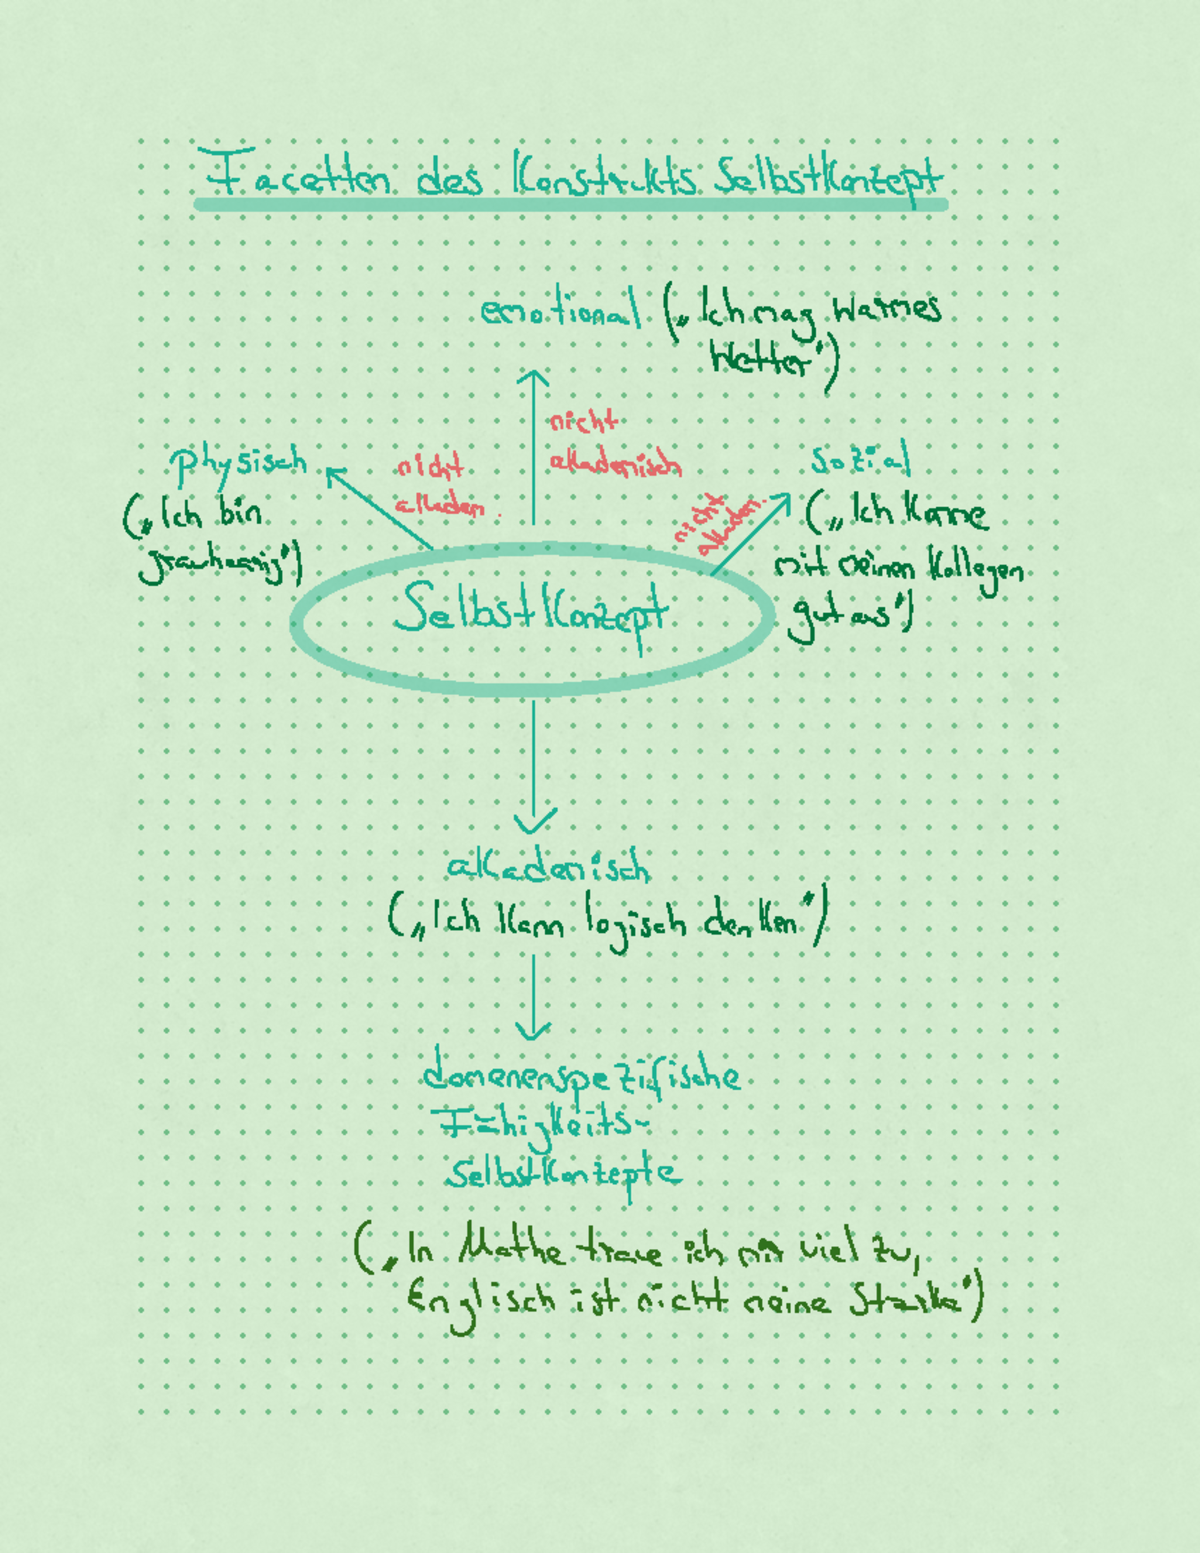 Facetten des Konstrukts Selbstkonzept
emotional („Ich mag warmes
Wetter")
nicht
akademisch
physisch
(„Ich bin
grauhaarig")
nicht
akadem.
nicht
akadem.
sozial
(„Ich komme
mit meinen Kollegen
gut aus")
Selbstkonzept
akademisch
(„Ich kann logisch denken")
domenenspezifische
Fähigkeits-
Selbstkonzepte
(„In Mathe traue ich mir viel zu,
Englisch ist nicht meine Stärke")